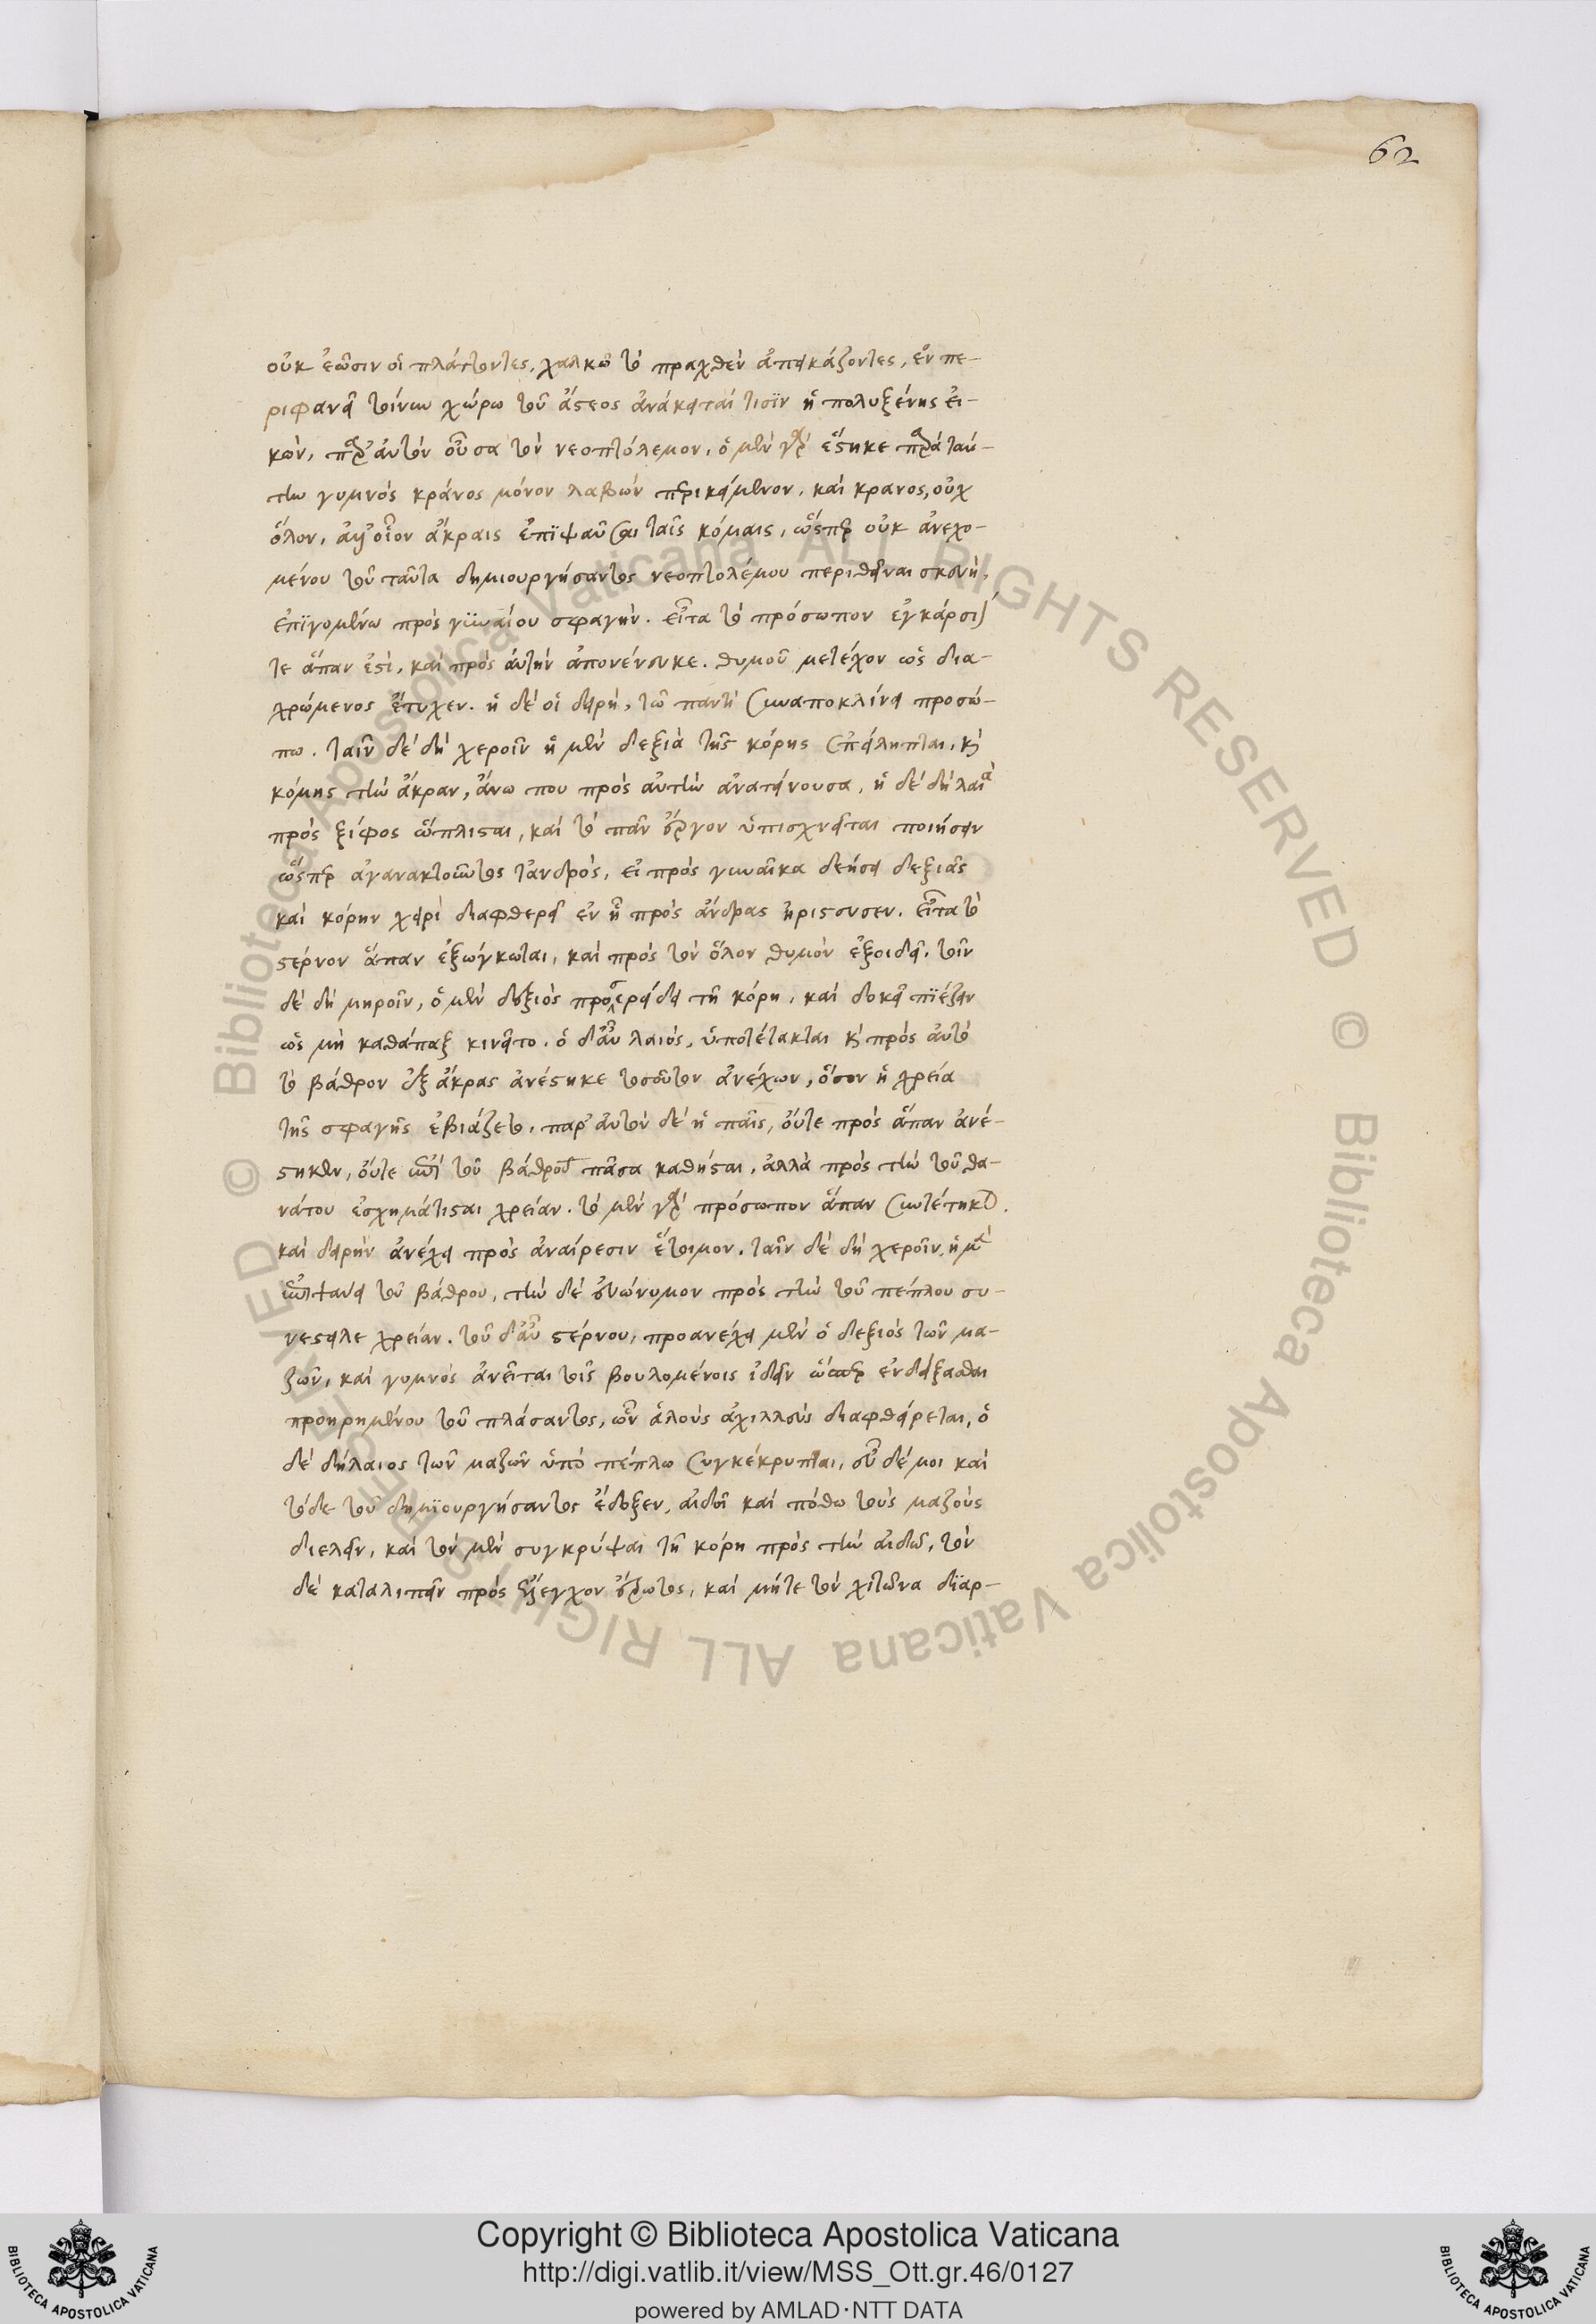 62
οὐκ ἐῶσιν οἱ πλάττοντες, χαλκῷ τὸ πραχθὲν ἀπεικάζοντες, ἐν πε-
ριφανεῖ τοίνυν χώρω τοῦ ἄστεος ἀνάκειταί τισὶν ἡ πολυξένης εἰ-
κὼν, παρ' αὐτὸν οὖσα τὸν νεοπτόλεμον, ὁ μὲν γὰρ ἕστηκε παρὰ ταύ-
την γυμνὸς κράνος μόνον λαβὼν περικείμενον, καὶ κρανος, οὐχ
ὅλον, ἀλλ' οἷον ἄκραις ἐπιψαῦσαι ταῖς κόμαις, ὥσπερ οὐκ ἀνεχο-
μένου τοῦ ταῦτα δημιουργήσαντος νεοπτολέμου περιθεῖναι σκευὴν,
ἐπϊγομένω πρὸς γυναίου σφαγὴν. εἶτα τὸ πρόσωπον ἐγκάρσιόν
τε ἅπαν ἐστὶ, καὶ πρὸς αὐτὴν ἀπονένευκε. θυμοῦ μετέχον ὡς δια-
χρώμενος ἔτυχεν. ἡ δέ οἱ δειρὴ, τῶ παντὶ συναποκλίνει προσώ-
πω. ταῖν δὲ δὴ χεροῖν ἡ μὲν δεξιὰ τῆς κόρης ἐπείληπται, καὶ
κόμης τὴν ἄκραν, ἄνω που πρὸς αὐτὴν ἀνατείνουσα, ἡ δὲ δὴ λαιὰ
πρὸς ξίφος ὥπλισται, καὶ τὸ πᾶν ἔργον ὑπισχνεῖται ποιήσειν
ὥσπερ ἀγανακτοῦντος τἀνδρὸς, εἰ πρὸς γυναῖκα δεήσει δεξιᾶς
καὶ κόρην χειρὶ διαφθερεῖ ἐν ᾗ πρὸς ἄνδρας ἠρίστευσεν. εἶτα τὸ
στέρνον ἅπαν ἐξώγκωται, καὶ πρὸς τὸν ὅλον θυμὸν ἐξοιδεῖ. τοῖν
δὲ δὴ μηροῖν, ὁ μὲν δεξιὸς προσερείδει τῆ κόρη, καὶ δοκεῖ πϊέζειν
ὡς μὴ καθάπαξ κινεῖτο. ὁ δ' αὖ λαιὸς, ὑποτέτακται καὶ πρὸς αὐτὸ
τὸ βάθρον ἐξ ἄκρας ἀνέστηκε τοσοῦτον ἀνέχων, ὅσον ἡ χρεία
τῆς σφαγῆς ἐβιάζετο. παρ' αὐτὸν δὲ ἡ παῖς, οὔτε πρὸς ἅπαν ἀνέ-
στηκεν, οὔτε ἐπὶ τοῦ βάθρου πᾶσα καθῆσται, ἀλλὰ πρὸς τὴν τοῦ θα-
νάτου ἐσχημάτισται χρείαν. τὸ μὲν γὰρ πρόσωπον ἅπαν συντέτηκε.
καὶ δειρὴν ἀνέχει πρὸς ἀναίρεσιν ἕτοιμον. ταῖν δὲ δὴ χεροῖν, ἡ μὲν
ἐπιψαύει τοῦ βάθρου, τὴν δὲ εὐώνυμον πρὸς τὴν τοῦ πέπλου συ-
νέστειλε χρείαν. τοῦ δ' αὖ στέρνου, προανέχει μὲν ὁ δεξιὸς τῶν μα-
ζῶν, καὶ γυμνὸς ἀνεῖται τοῖς βουλομένοις ἰδεῖν ὥσπερ ἐνδείξασθαι
προηρημένου τοῦ πλάσαντος, ὧν ἁλοὺς ἀχιλλεὺς διαφθείρεται, ὁ
δὲ δὴ λαιος τῶν μαζῶν ὑπὸ πέπλω συγκέκρυπται, εὖ δέ μοι καὶ
τόδε τοῦ δημϊουργήσαντος ἔδοξεν, αἰδοῖ καὶ πόθω τοὺς μαζοὺς
διελεῖν, καὶ τὸν μὲν συγκρύψαι τῆ κόρη πρὸς τὴν αἰδῶ, τὸν
δὲ καταλιπεῖν πρὸς ἔλεγχον ἔρωτος, καὶ μήτε τὸν χιτῶνα δϊαρ-
Copyright © Biblioteca Apostolica Vaticana
http://digi.vatlib.it/view/MSS_Ott.gr.46/0127
powered by AMLAD·NTT DATA